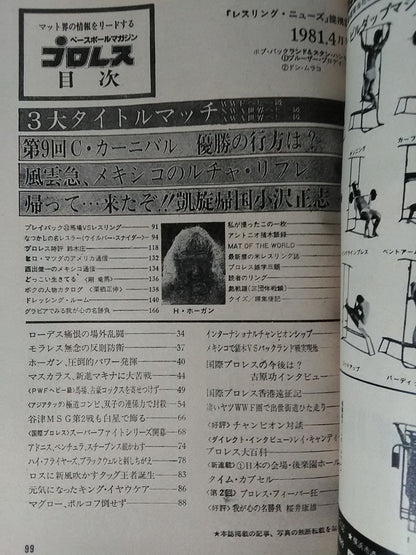 マット界の情報をリードする
ベースボールマガジン
プロレス
目次
『レスリング・ニューズ』提携
1981.4月
ボブ・バックランド&スタン・ハン
①ブルーザー・ブロディ
②ドン・ムラコ
3大タイトルマッチ
第9回C・カーニバル 優勝の行方は?
風雲急、メキシコのルチャ・リブレ
帰って…来たぞ!!凱旋帰国小沢正志
プレイバック 馬場VSレスリング 91
なつかしの名レスラー(ウイルバー・スナイダー) 94
プロレス時評 鈴木庄一 118
ヒロ・マツダのアメリカ通信 132
酉出健一のメキシコ通信 134
どっこい生きてる(剛竜馬) 136
ボクの人物カタログ(栗栖正伸) 138
ドレッシング・ルーム 140
グラビアでみる我が心の名勝負 166
私が撮ったこの一枚
アントニオ猪木語録
MAT OF THE WORLD
最新版の米レスリング誌
プロレス雑学三題
読者のリング
クイズ/編集後記
H・ホーガン
ローデス痛恨の場外乱闘 34
モラレス無念の反則防衛 37
ホーガン、圧倒的パワー発揮 40
マスカラス、新進マキナに大苦戦 44
〈PWFヘビー級〉馬場、古豪コックスを寄せつけず 48
〈アジアタッグ〉極道コンビ、双子の連係力で封殺 44
谷津MSG第2戦も白星で飾る 66
〈国際プロレス〉スーパーファイトシリーズ開幕 68
アドニス、ベンチュラ、スチーブンス組かおす 74
ハイ・フライヤーズ、ブラックウェルと刺しちがえ 78
ロスに新風吹かすタッグ王者誕生 83
元気になったキング・イヤウケア 86
マグロー、ボルコフ倒せず 88
インターナショナルチャンピオンシップ
メキシコで猪木VSバックランド戦実現
国際プロレスの今後は?
吉原功インタビュー
国際プロレス香港遠征記
凄いヤツWWF圏で出世街道ひた走り
〈好評〉チャンピオン対談
〈ダイレクト・インタビュー〉レイ・キャンディ
プロレス大百科
〈新連載〉①日本の会場・後楽園ホール
タイム・カプセル
〈第2回〉プロレス・フィーバー狂
〈好評〉我が心の名勝負 桜井康雄
★本誌掲載の記事、写真の無断転載を
99